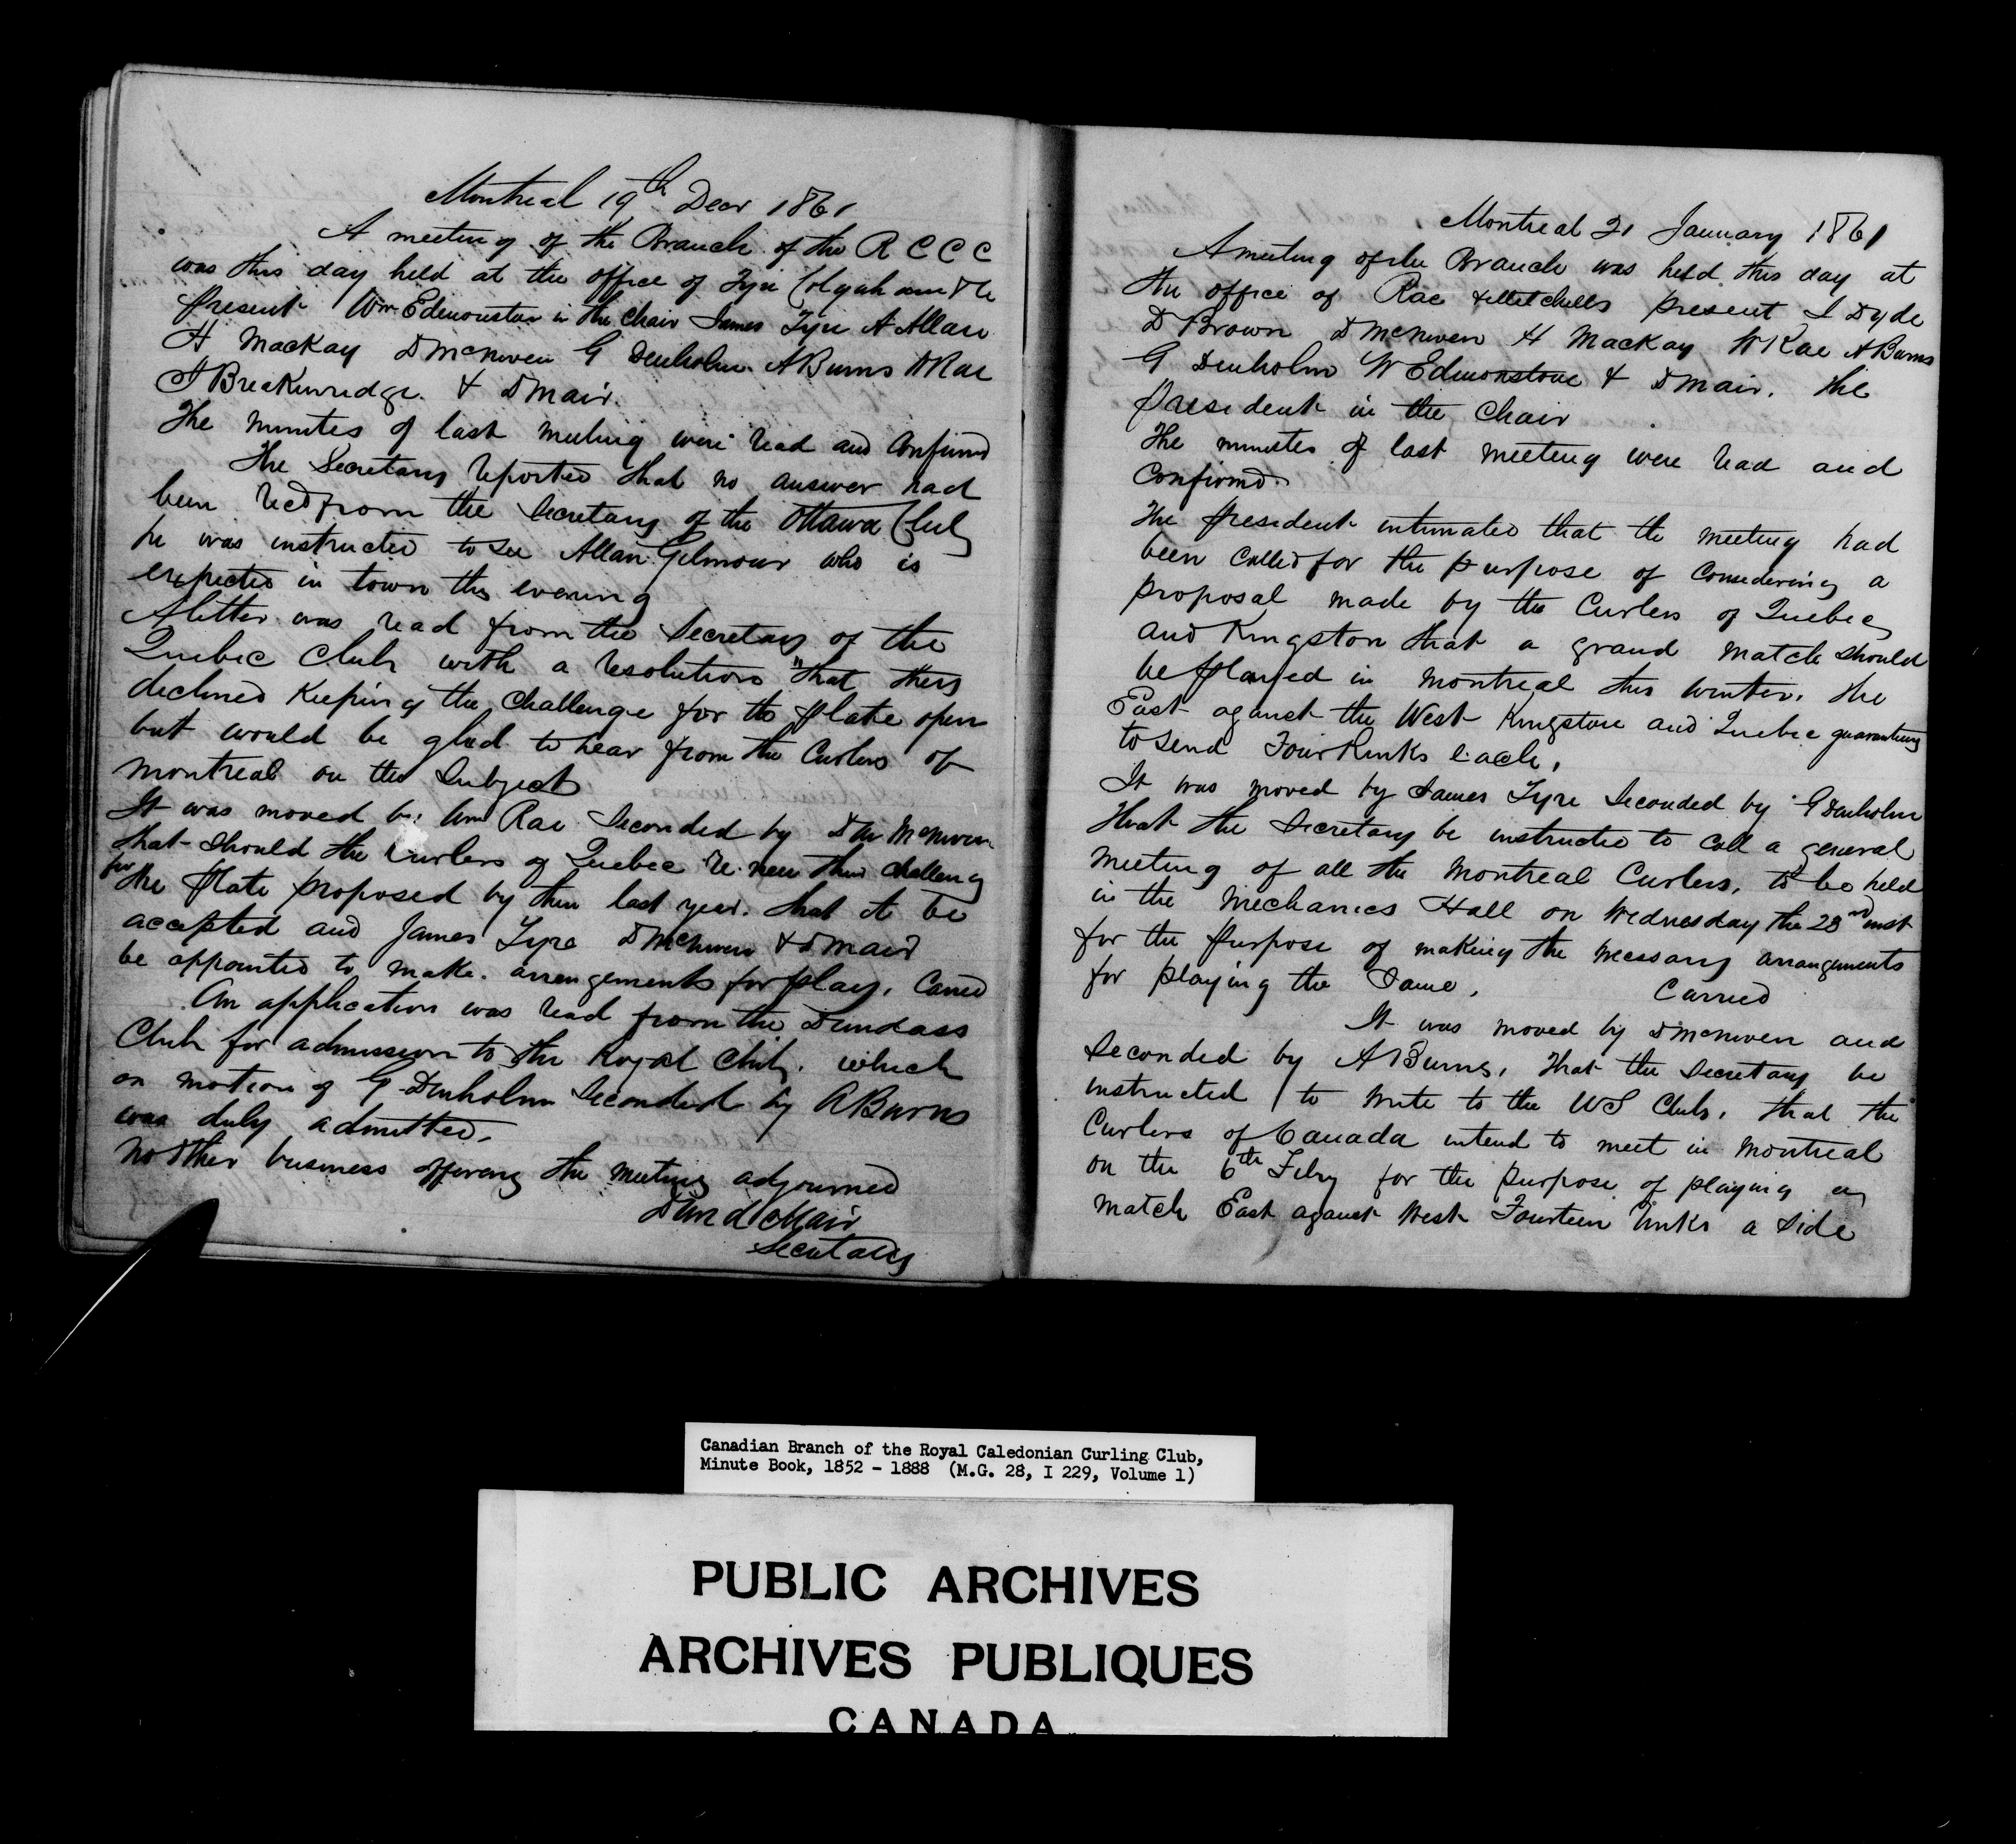 Montreal 19th Decr 1861
A meeting of the Branch of the R C C C
was this day held at the office of Tyre Colquhoun & Co
present Wm Edmonstone in the Chair James Tyre A Allan
H MacKay D McNiven G Denholm A Burns W Rae
J Breckenredge & D Mair.
The minutes of last meeting were read and Confirmd
The Secretary reported that no answer had
been recd from the Secretary of the Ottawa Club
he was instructed to see Allan Gilmour who is
expected in town this evening
A letter was read from the Secretary of the
Quebec Club with a resolution "that they
declined Keeping the Challenge for the plate open
but would be glad to hear from the Curlers of
Montreal on the Subject
It was moved by Wm Rae Seconded by D McNiven
that should the Curlers of Quebec re-new their challeng
for the plate proposed by them last year. that it be
accepted and James Tyre D McNiven & D Mair
be appointed to make arrangements for play. Carried
An application was read from the Dundass
Club for admission to the Royal Club. which
on motion of G Denholm Seconded by A Burns
was duly admitted.
No other business offering the meeting adjourned
David Mair
Secretary
Montreal 21 January 1861
A meeting of the Branch was held this day at
the office of Rae & Mitchells present J Dyde
D Brown D McNiven H Mackay W Rae A Burns
G Denholm W Edmonstone & D Mair. The
president in the Chair
The minutes of last meeting were read and
Confirmd.
The president intimated that the meeting had
been Called for the purpose of Considering a
proposal made by the Curlers of Quebec
and Kingston that a grand match should
be played in Montreal this winter. the
East against the West Kingston and Quebec guaranteeing
to send Four Rinks each.
It was moved by James Tyre Seconded by G Denholm
that the Secretary be instructed to call a general
meeting of all the Montreal Curlers. to be held
in the Mechanics Hall on Wednesday the 23rd inst
for the purpose of making the necessary arrangements
for playing the Same. Carried
It was moved by D McNiven and
Seconded by A Burns. that the Secretary be
instructed to write to the US Clubs. that the
Curlers of Canada intend to meet in Montreal
on the 6th Feby for the purpose of playing a
match East against West Fourteen rinks a side
Canadian Branch of the Royal Caledonian Curling Club,
Minute Book, 1852 - 1888 (M.G. 28, I 229, Volume 1)
PUBLIC ARCHIVES
ARCHIVES PUBLIQUES
CANADA